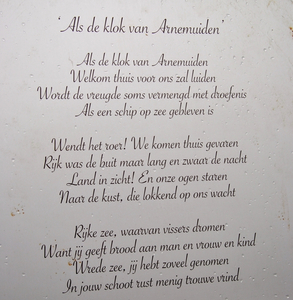 'Als de klok van Arnemuiden'
Als de klok van Arnemuiden
Welkom thuis voor ons zal luiden
Wordt de vreugde soms vermengd met droefenis
Als een schip op zee gebleven is
Wendt het roer! We komen thuis gevaren
Rijk was de buit maar lang en zwaar de nacht
Land in zicht! En onze ogen staren
Naar de kust, die lokkend op ons wacht
Rijke zee, waarvan vissers dromen
Want jij geeft brood aan man en vrouw en kind
Wrede zee, jij hebt zoveel genomen
In jouw schoot rust menig trouwe vrind